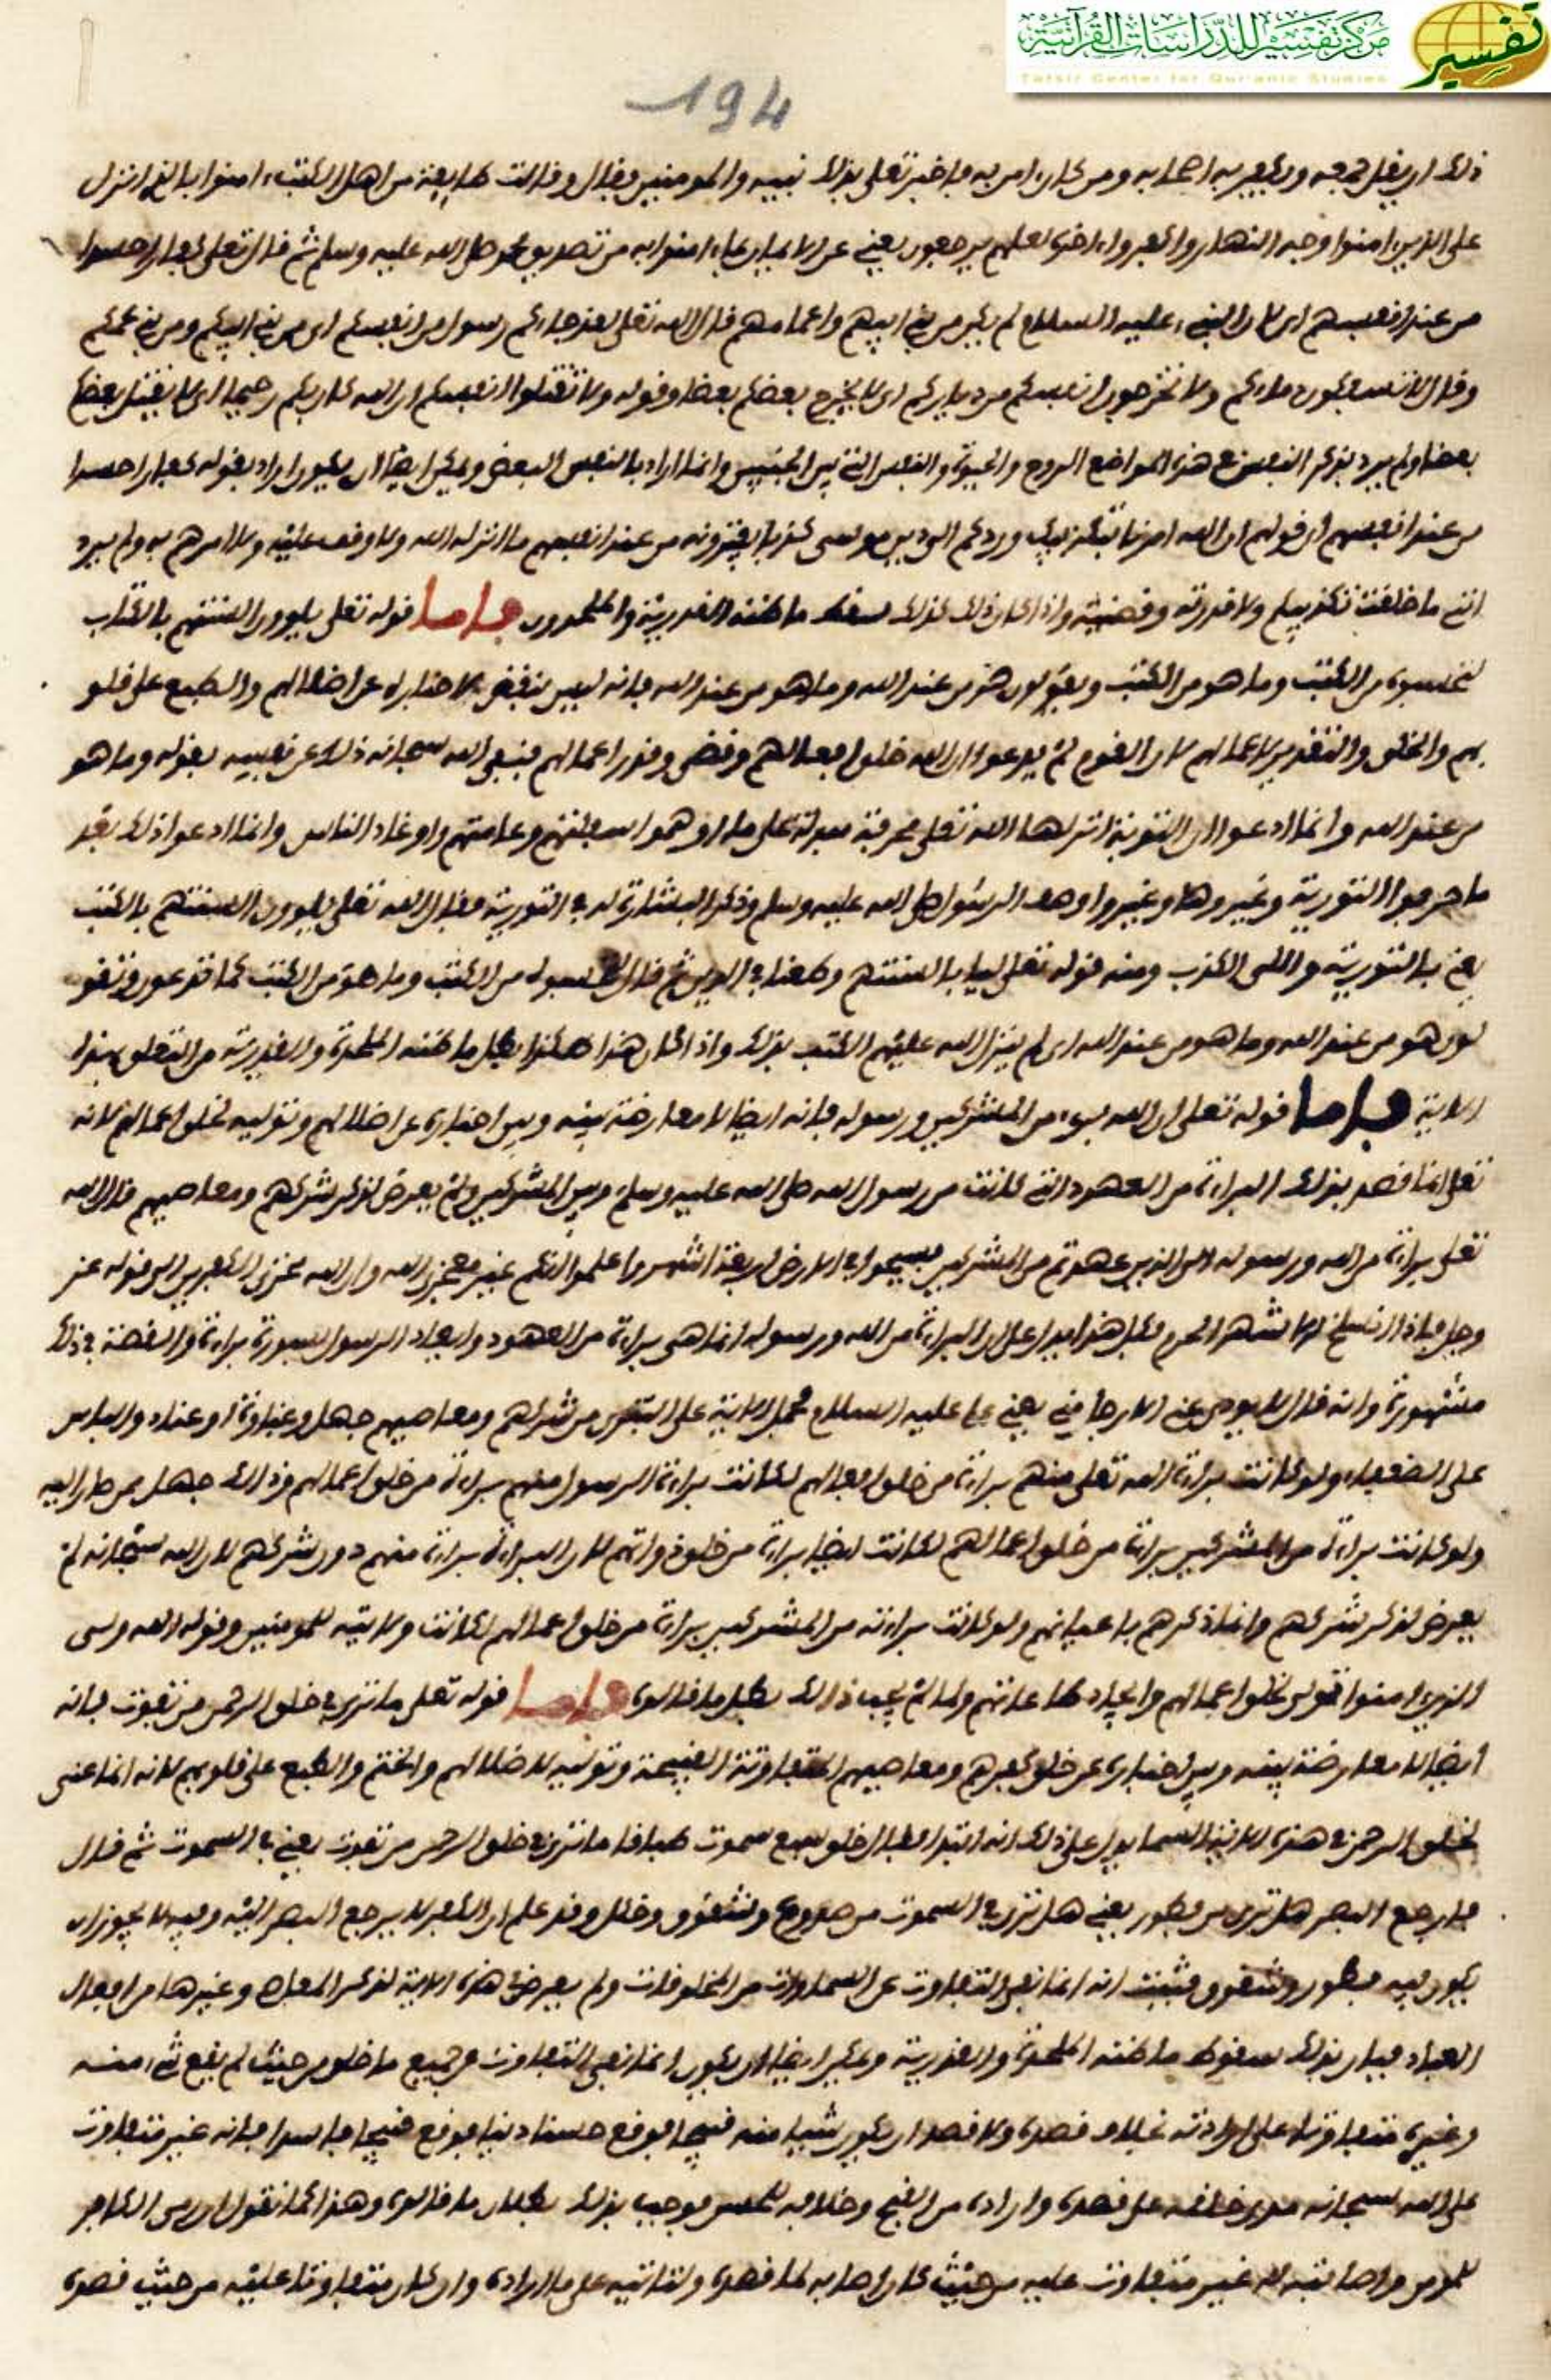 مركز تفسير للدراسات القرآنية
Tafsir Center for Qur'anic Studies
تفسير
194
ذلك ان يفل جمعه ويكفر به اصحابه ومن كان امن به فاخبر تعلى بذلك نبيه والمومنين فقال وقالت طايفة من اهل الكتب امنوا بالذي انزل
على الذين امنوا وجه النهار واكفروا ءاخره لعلهم يرجعون يعني عن الايمان بما امنوا به من تصديق محمد صلى الله عليه وسلم ثم قال تعلى كفارا حسدا
من عند انفسهم اي لان النبي عليه السلام لم يكن من بني ابيهم واعمامهم قال الله تعلى لقد جاءكم رسول من انفسكم اي من بني ابيكم ومن بني عمكم
وقال لا تسفكون دماءكم ولا تخرجون انفسكم من دياركم اي لا يخرج بعضكم بعضا وقوله ولا تقتلوا انفسكم ان الله كان بكم رحيما اي لا يقتل بعضكم
بعضا ولم يرد بذكر النفس في هذه المواضع الروح والحيوة والنفس التي بين الجنبين وانما اراد بالنفس البعض ويمكن ايضا ان يكون اراد بقوله كفارا حسدا
من عند انفسهم اي قولهم ان الله امرنا بتكذيبك وردكم الى دين موسى كذبا يفترونه من عند انفسهم ما انزله الله ولا وقف عليه ولا امرهم به ولم يرد
انني ما خلقت تكذيبهم ولا قدرته وقضيته واذا كان ذلك كذلك سقط ما ظنته القدرية والملحدون فاما قوله تعلى يلوون السنتهم بالكتاب
لتحسبوه من الكتب وما هو من الكتب ويقولون هو من عند الله وما هو من عند الله فانه ليس بنقض لاخباره عن اضلالهم والطبع على قلو
بهم والخلق والتقدير لاعمالهم لان القوم لم يدعوا ان الله خلق افعالهم وقضى وقدر اعمالهم فينفي الله سبحانه ذلك عن نفسه بقوله وما هو
من عند الله وانما ادعوا ان التورية انزلها الله تعلى محرفة مبدلة على ما اوهموا سفلتهم وعامتهم واوغاد الناس وانما ادعوا ذلك بعد
ما حرفوا التورية وغيروها وغيروا وصف الرسول صلى الله عليه وسلم وذكر البشارة له في التورية فقال الله تعلى يلوون السنتهم بالكتب
يعني بالتورية واللي الكذب ومنه قوله تعلى ليا بالسنتهم وطعنا في الدين ثم قال لتحسبوه من الكتب وما هو من الكتب كما تدعون وتقو
لون هو من عند الله وما هو من عند الله اي لم ينزل الله عليهم الكتب بذلك واذا كان هذا هكذا بطل ما ظنته الملحدة والقدرية من التعلق بهذه
الاية فاما قوله تعلى ان الله بريء من المشركين ورسوله فانه ايضا لا معارضة بينه وبين اخباره عن اضلالهم وتوليه لخلق اعمالهم لانه
تعلى انما قصد بذلك البراءة من العهود التي كانت من رسول الله صلى الله عليه وسلم وبين المشركين ولم يعرض لذكر شركهم ومعاصيهم قال الله
تعلى براءة من الله ورسوله الى الذين عهدتم من المشركين فسيحوا في الارض اربعة اشهر واعلموا انكم غير معجزي الله وان الله مخزي الكفرين الى قوله عز
وجل فاذا انسلخ الاشهر الحرم فكل هذا يدل على ان البراءة من الله ورسوله انما هي براءة من العهود وايفاد الرسول بسورة براءة والقصة في ذلك
مشهورة وانه قال لا يودي عني الا رجل مني يعني عليا عليه السلام فحمل الاية على التبري من شركهم ومعاصيهم جهل وغباوة او عناد والباس
على الضعفاء ولو كانت براءة الله تعلى منهم براءة من خلق افعالهم لكانت براءة الرسول منهم براءة من خلق اعمالهم وذلك جهل ممن صار اليه
ولو كانت براءة من المشركين براءة من خلق اعمالهم لكانت ايضا براءة من خلق ذواتهم لان البراءة براءة منهم دون شركهم لان الله سبحانه لم
يعرض لذكر شركهم وانما ذكرهم باعيانهم ولو كانت براءته من المشركين براءة من خلق اعمالهم لكانت ولايته للمومنين وقوله الله ولي
الذين امنوا تولي لخلق اعمالهم وايجاد طاعاتهم ولما لم يجب ذلك بطل ما قالوه فاما قوله تعلى ما ترى في خلق الرحمن من تفوت فانه
ايضا لا معارضة بينه وبين اخباره عن خلق كفرهم ومعاصيهم المتفاوتة القبيحة وتوليه لاضلالهم والختم والطبع على قلوبهم لانه انما عنى
بخلق الرحمن في هذه الاية السما يدل على ذلك انه ابتدا فقال خلق سبع سموت طباقا ما ترى في خلق الرحمن من تفوت يعني في السموت ثم قال
فارجع البصر هل ترى من فطور يعني هل ترى في السموت من صدوع وشقوق وخلل وقد علم ان الكفر لا يرجع البصر اليه وفيه لا يجوز ان
يكون فيه فطور وشقوق فثبت انه انما نفى التفاوت عن السماوات من المخلوقات ولم يعرض في هذه الاية لذكر المعاصي وغيرها من افعال
العباد فبان بذلك سقوط ما ظنته الملحدة والقدرية ويمكن ايضا ان يكون انما نفى التفاوت في جميع ما خلق من حيث لم يقع شيء منه
وغيره متفاوتا على ارادته بخلاف قصده ولا قصد ان يكون شيا منه قبيحا فوقع حسنا
على الله سبحانه من خلقه على قصده واراده من القبح وخلافه للحسن فوجب بذلك بطلان ما قالوه وهذا كما نقول ان رمي الكافر
للمومن واصابته له غير متفاوت عليه من حيث كان اصابه لما قصده ولتاتيه على ما اراده وان كان متفاوتا عليه من حيث قصده